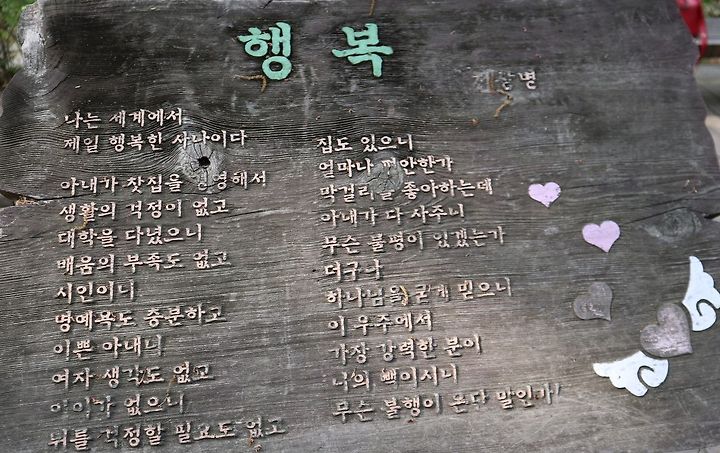 행복
천상명
나는 세계에서
제일 행복한 사나이다
아내가 찻집을 경영해서
생활의 걱정이 없고
대학을 다녔으니
배움의 부족도 없고
시인이니
명예욕도 충분하고
이쁜 아내니
여자 생각도 없고
아이가 없으니
뒤를 걱정할 필요도 없고
집도 있으니
얼마나 편안한가
막걸리를 좋아하는데
아내가 다 사주니
무슨 불평이 있겠는가
더구나
하나님을 굳게 믿으니
이 우주에서
가장 강력한 분이
나의 빽이시니
무슨 불행이 온다 말인가!